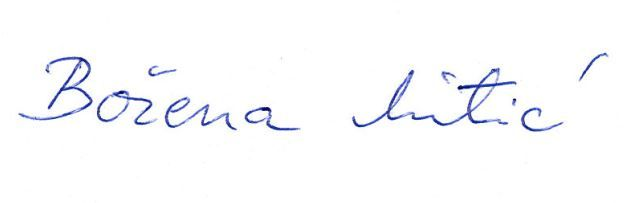 Božena Mitić